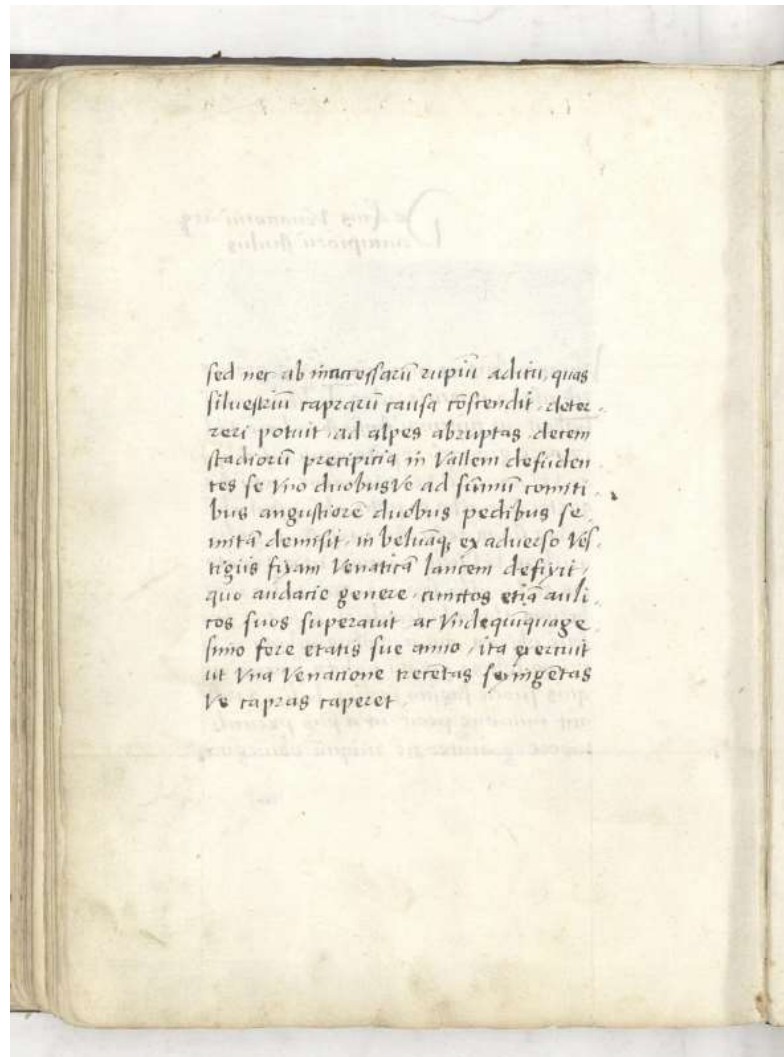 sed nec ab inaccessarū rupiū aditu, quas
silvestriū caprarū causa cōscendit, deter
reri potuit, ad alpes abruptas decem
stadiorū precipicia in Vallem defūden
tes se Vno duobusVe ad sūmū comiti
bus angustiorē duobus pedibus se
mitā demisit, in beluāq; ex adverso Ves
tigiis fixam Venaticā lancem defixit,
quo audacie genere, cunctos etiā auli
cos suos superavit ac Vndequīquage
simo fere etatis sue anno, ita exercuit
ut Vna Venacione trecētas sexingētas
Ve capras caperet.